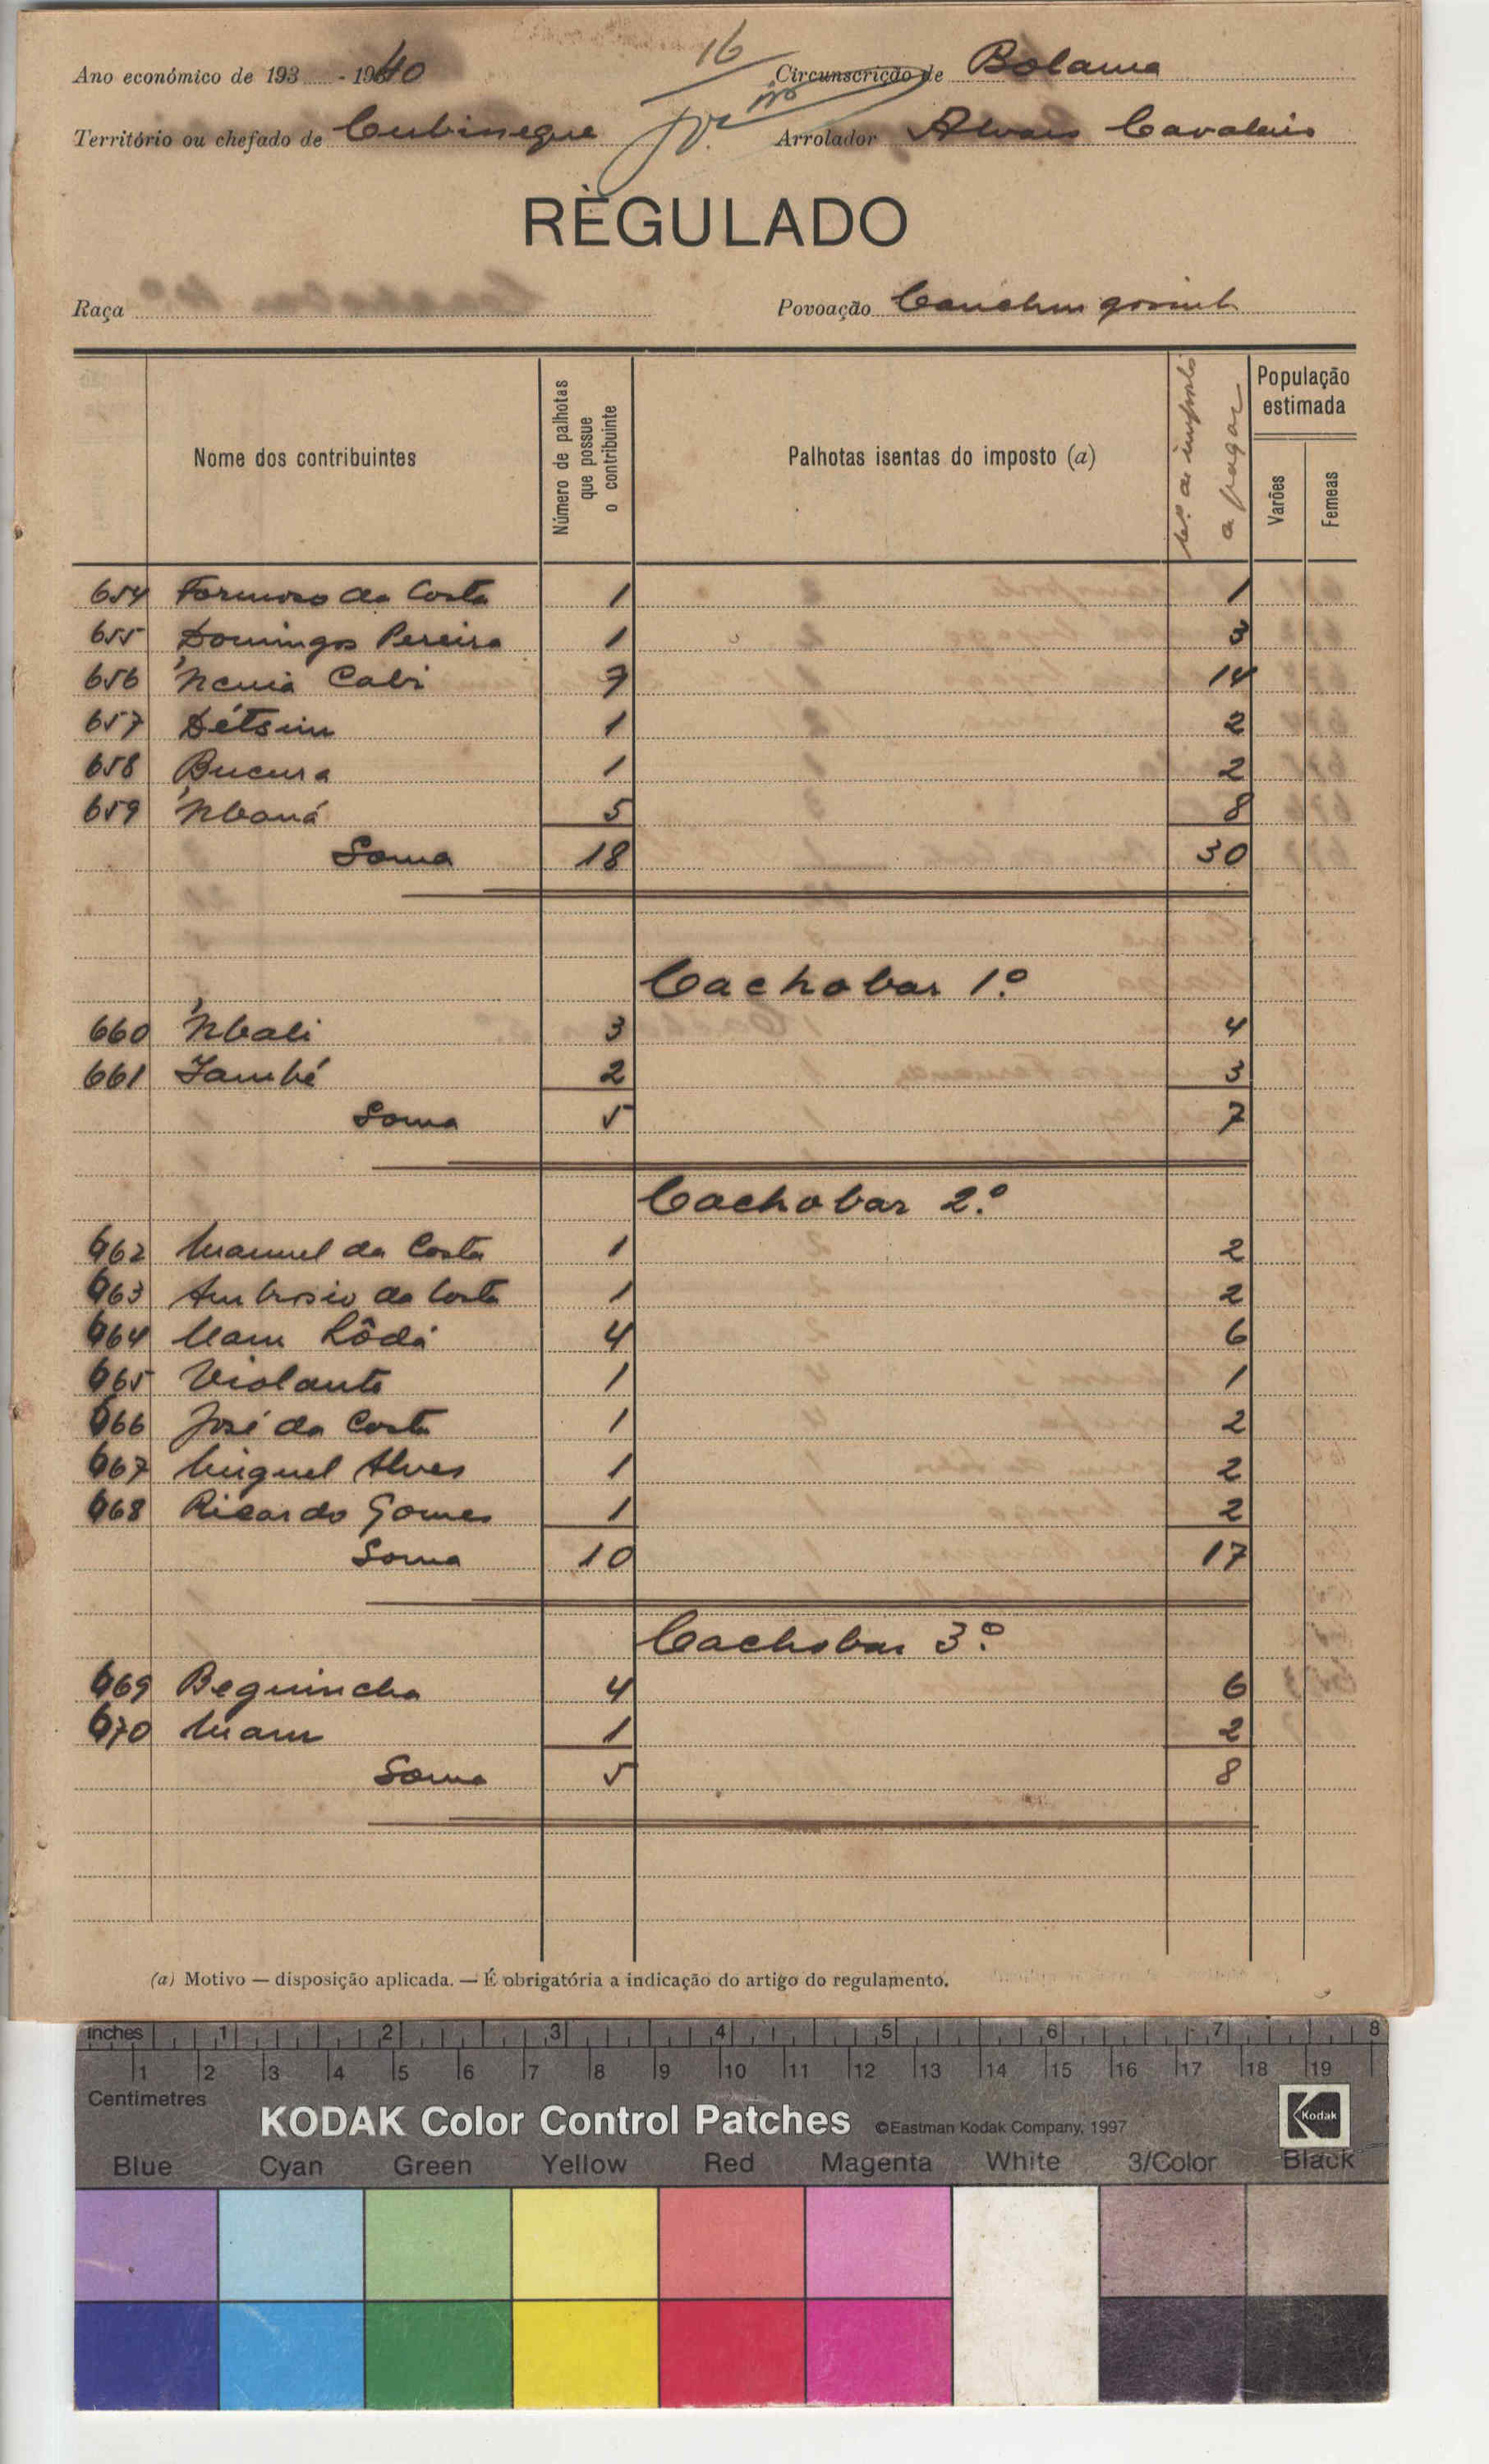 16
Ano económico de 193 - 1940 Circunscrição de Bolama
Território ou chefado de Cubisseque Arrolador Alvaro Cavaleiro
REGULADO
Raça Povoação
Nome dos contribuintes
Número de palhotas que possue o contribuinte
Palhotas isentas do imposto (a)
N.º de imposto a pagar
População estimada
Varões Femeas
654 Formoso da Costa 1 1
655 Domingos Pereira 1 3
656 'Ncuia Cabi 9 14
657 Détsim 1 2
658 Bucura 1 2
659 'Nbaná 5 8
Soma 18 30
Cachobar 1.º
660 'Nbali 3 4
661 Jambé 2 3
Soma 5 7
Cachobar 2.º
662 Manuel da Costa 1 2
663 Ambrosio da Costa 1 2
664 Mam Lôdá 4 6
665 Violante 1 1
666 José da Costa 1 2
667 Miguel Alves 1 2
668 Ricardo Gomes 1 2
Soma 10 17
Cachobar 3.º
669 Beguincha 4 6
670 Mam 1 2
Soma 5 8
(a) Motivo — disposição aplicada. — É obrigatória a indicação do artigo do regulamento.
inches 1 2 3 4 5 6 7 8
1 2 3 4 5 6 7 8 9 10 11 12 13 14 15 16 17 18 19
Centimetres
KODAK Color Control Patches ©Eastman Kodak Company, 1997 Kodak
Blue Cyan Green Yellow Red Magenta White 3/Color Black